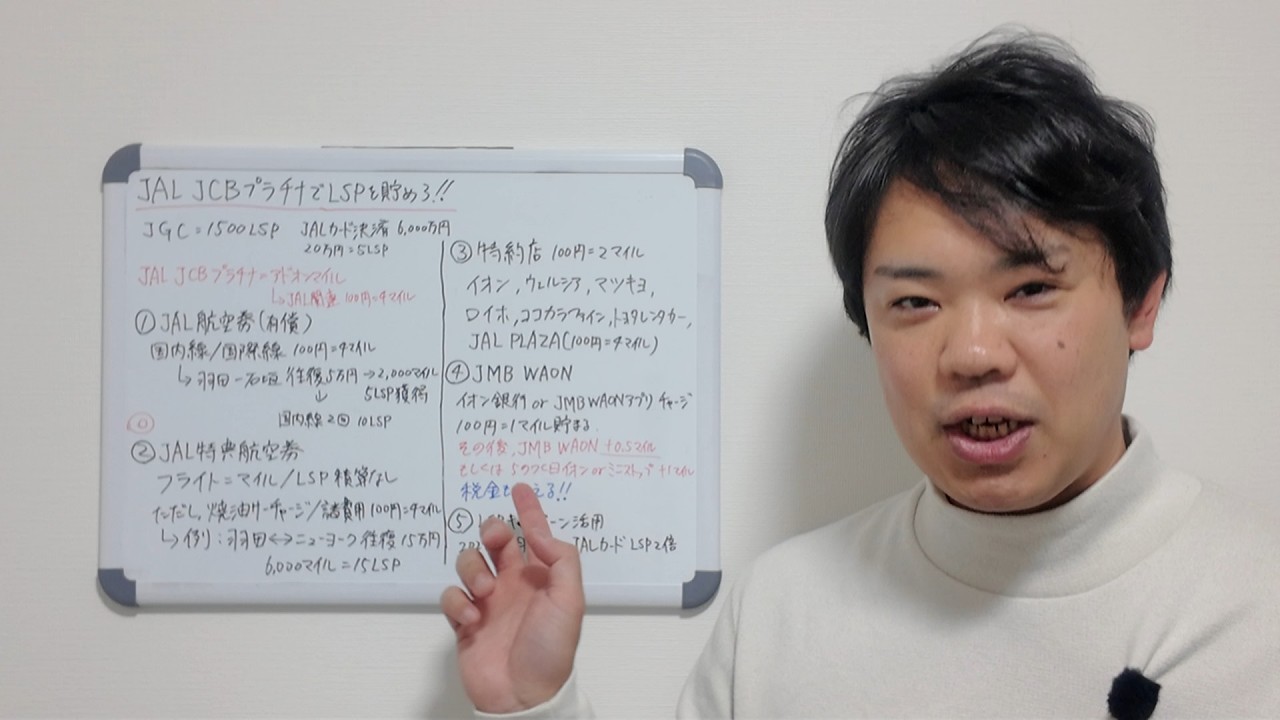 JAL JCBプラチナでLSPを貯めろ!!
JGC=1500LSP JALカード決済 6,000万円
20万円=5LSP
JAL JCBプラチナ=アドオンマイル
↳JAL関連 100円=4マイル
①JAL航空券(有償)
国内線/国際線 100円=4マイル
↳羽田-石垣 往復5万円→2,000マイル
↓ 5LSP獲得
国内線2回 10LSP
②JAL特典航空券
フライト=マイル/LSP積算なし
ただし、燃油サーチャージ/諸費用100円=4マイル
↳例:羽田↔ニューヨーク往復15万円
6,000マイル=15LSP
③特約店 100円=2マイル
イオン,ウェルシア,マツキヨ,
ロイホ,ココカラファイン,トヨタレンタカー,
JAL PLAZA(100円=4マイル)
④JMB WAON
イオン銀行or JMB WAONアプリ チャージ
100円=1マイル貯まる
その後、JMB WAON +0.5マイル
もしくは 5のつく日イオン or ミニストップ +1マイル
税金も える!!
⑤ ーン活用
JALカードLSP2倍